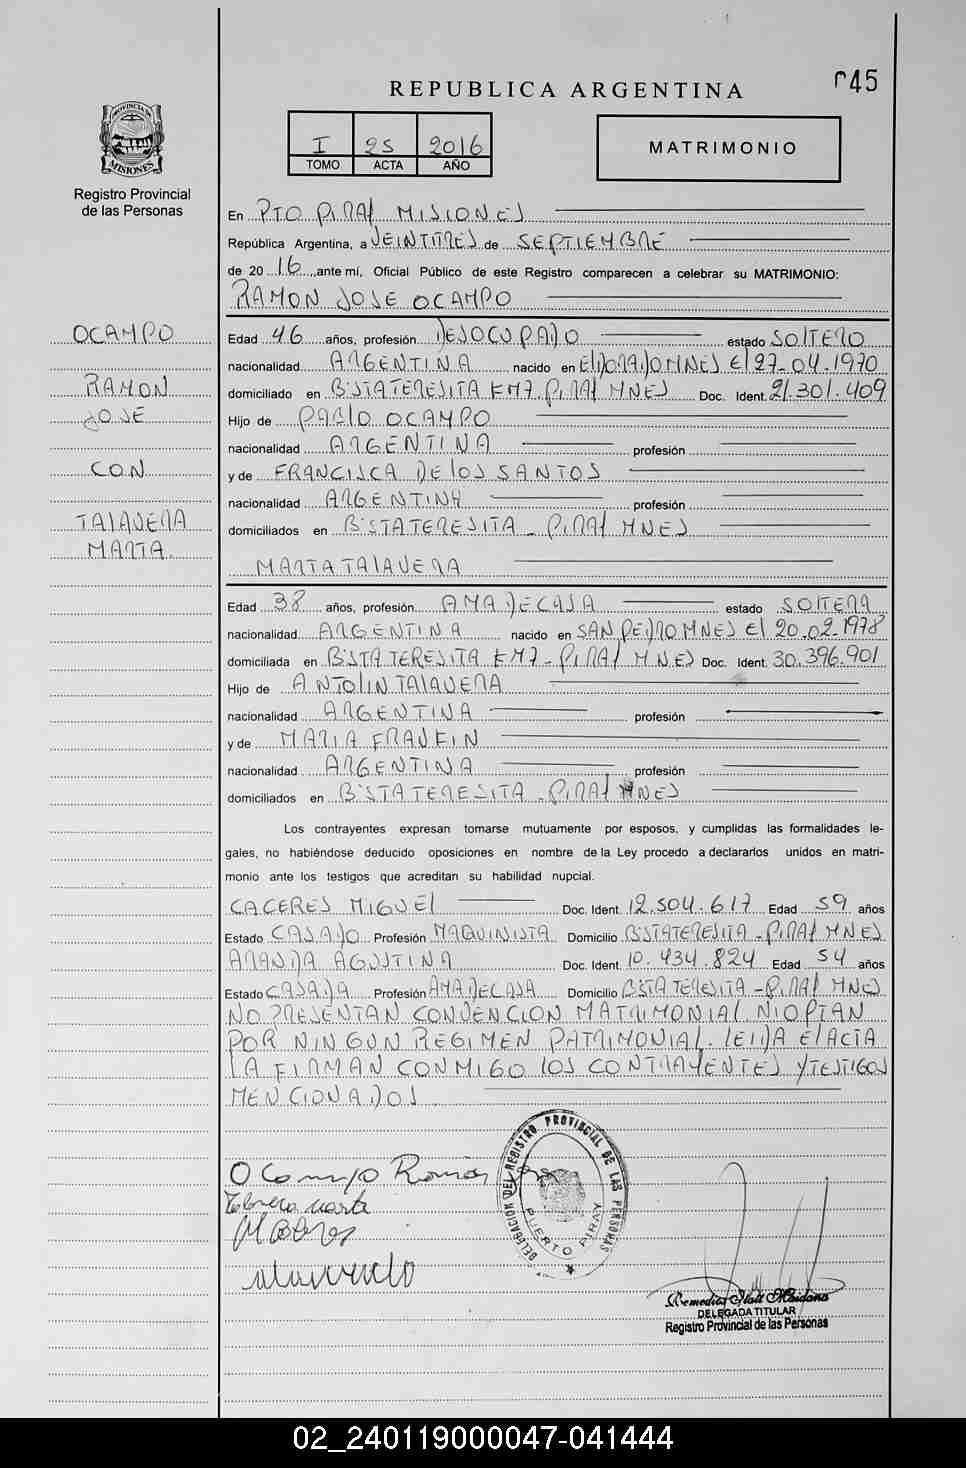 REPUBLICA ARGENTINA
045
PROVINCIA DE
MISIONES
Registro Provincial
de las Personas
I 25 2016
TOMO ACTA AÑO
MATRIMONIO
En PTO PIRAY MISIONES
República Argentina, a VEINTITRES de SEPTIEMBRE
de 2016, ante mí, Oficial Público de este Registro comparecen a celebrar su MATRIMONIO:
RAMON JOSE OCAMPO
OCAMPO
RAMON
JOSE
CON
TALAVERA
MARTA.
Edad 46 años, profesión DESOCUPADO estado SOLTERO
nacionalidad ARGENTINA nacido en ELDORADO MNES EL 27-04-1970
domiciliado en BºSTA TERESITA KM7 PIRAY MNES Doc. Ident. 21.301.409
Hijo de PABLO OCAMPO
nacionalidad ARGENTINA profesión
y de FRANCISCA DE LOS SANTOS
nacionalidad ARGENTINA profesión
domiciliados en BºSTA TERESITA - PIRAY MNES
MARTA TALAVERA
Edad 38 años, profesión AMA DE CASA estado SOLTERA
nacionalidad ARGENTINA nacido en SAN PEDRO MNES EL 20.02.1978
domiciliada en BºSTA TERESITA KM7 - PIRAY MNES Doc. Ident. 30.396.901
Hijo de ANTOLIN TALAVERA
nacionalidad ARGENTINA profesión
y de MARIA
nacionalidad ARGENTINA profesión
domiciliados en BºSTA TERESITA - PIRAY MNES
Los contrayentes expresan tomarse mutuamente por esposos, y cumplidas las formalidades le-
gales, no habiéndose deducido oposiciones en nombre de la Ley procedo a declararlos unidos en matri-
monio ante los testigos que acreditan su habilidad nupcial.
CACERES MIGUEL Doc. Ident. 12.504.617 Edad 59 años
Estado CASADO Profesión MAQUINISTA Domicilio BºSTA TERESITA - PIRAY MNES
ARANDA AGUSTINA Doc. Ident. 10.434.824 Edad 54 años
Estado CASADA Profesión AMA DE CASA Domicilio BºSTA TERESITA - PIRAY MNES
NO PRESENTAN CONVENCION MATRIMONIAL NI OPTAN
POR NINGUN REGIMEN PATRIMONIAL. LEIDA EL ACTA
LA FIRMAN CONMIGO LOS CONTRAYENTES Y TESTIGOS
MENCIONADOS
Ocampo Ramon
DELEGACION DEL REGISTRO PROVINCIAL DE LAS PERSONAS
PUERTO PIRAY
DELEGADA TITULAR
Registro Provincial de las Personas
02_240119000047-041444